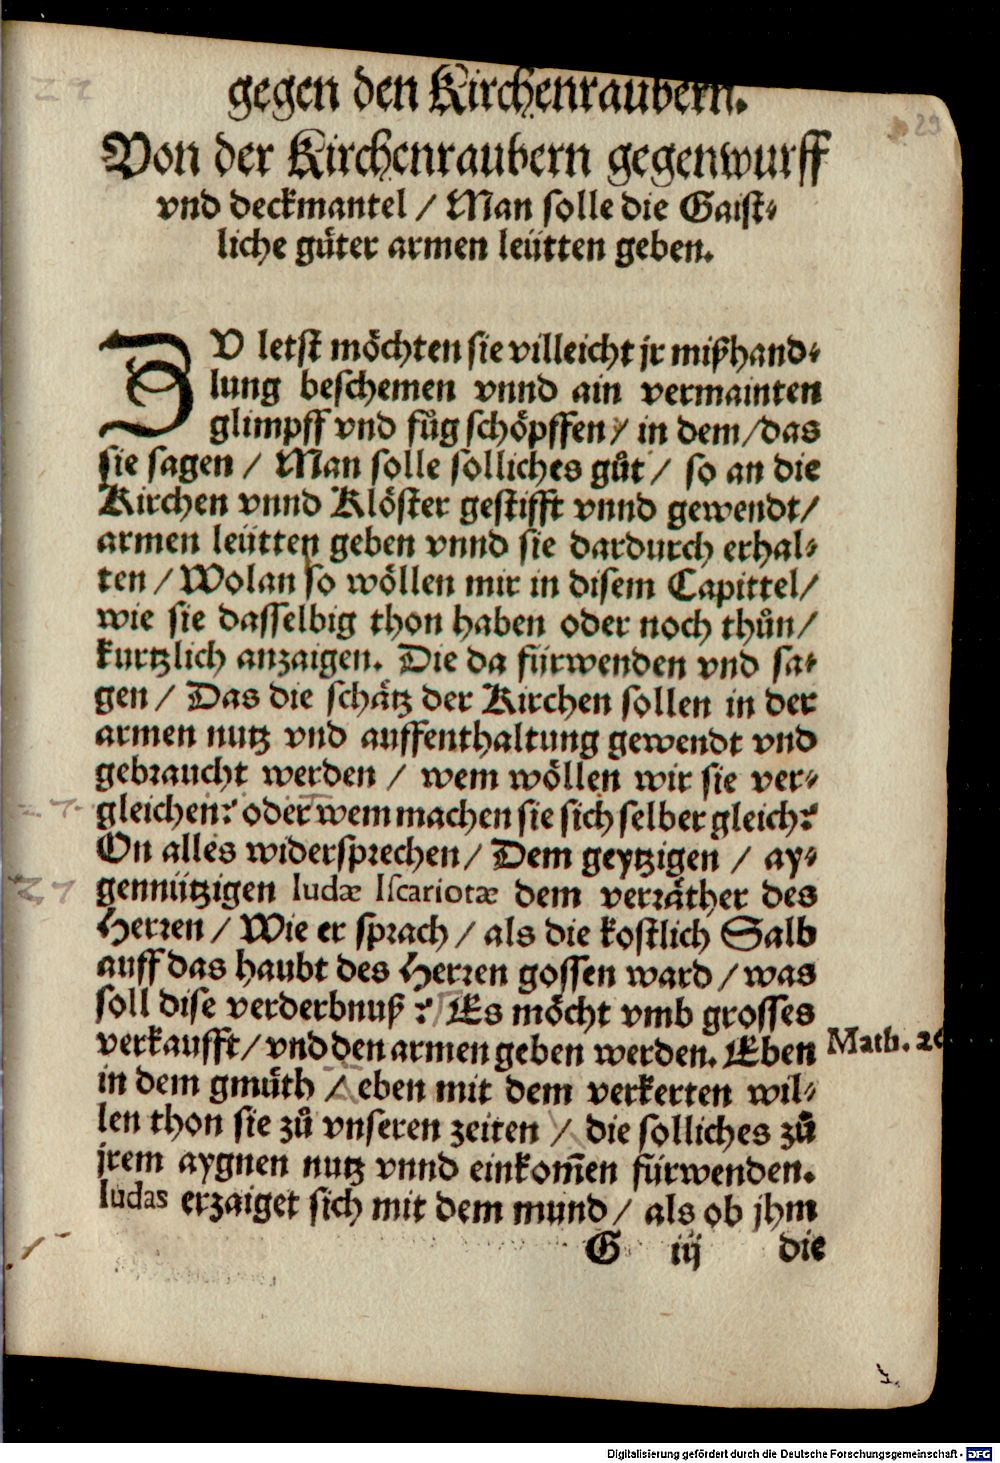 gegen den Kirchenraubern.
29
Von der Kirchenraubern gegenwurff
vnd deckmantel / Man solle die Gaist⸗
liche gůter armen leütten geben.
ZV letst möchten sie villeicht jr mißhand⸗
lung beschemen vnnd ain vermainten
glimpff vnd fůg schöpffen / in dem / das
sie sagen / Man solle solliches gůt / so an die
Kirchen vnnd Klöster gestifft vnnd gewendt /
armen leütten geben vnnd sie dardurch erhal⸗
ten / Wolan so wöllen mir in disem Capittel /
wie sie dasselbig thon haben oder noch thůn /
kurtzlich anzaigen. Die da fürwenden vnd sa⸗
gen / Das die schätz der Kirchen sollen in der
armen nutz vnd auffenthaltung gewendt vnd
gebraucht werden / wem wöllen wir sie ver⸗
gleichen? oder wem machen sie sich selber gleich?
On alles widersprechen / Dem geytzigen / ay⸗
gennützigen Iudæ Iscariotæ dem verräther des
Herren / Wie er sprach / als die kostlich Salb
auff das haubt des Herren gossen ward / was
soll dise verderbnuß? Es möcht vmb grosses
verkaufft / vnd den armen geben werden. Eben
Math. 26
in dem gmüth / eben mit dem verkerten wil⸗
len thon sie zů vnseren zeiten / die solliches zů
jrem aygnen nutz vnnd einkom̃en fürwenden.
Iudas erzaiget sich mit dem mund / als ob jhm
G iij die
Digitalisierung gefördert durch die Deutsche Forschungsgemeinschaft - DFG